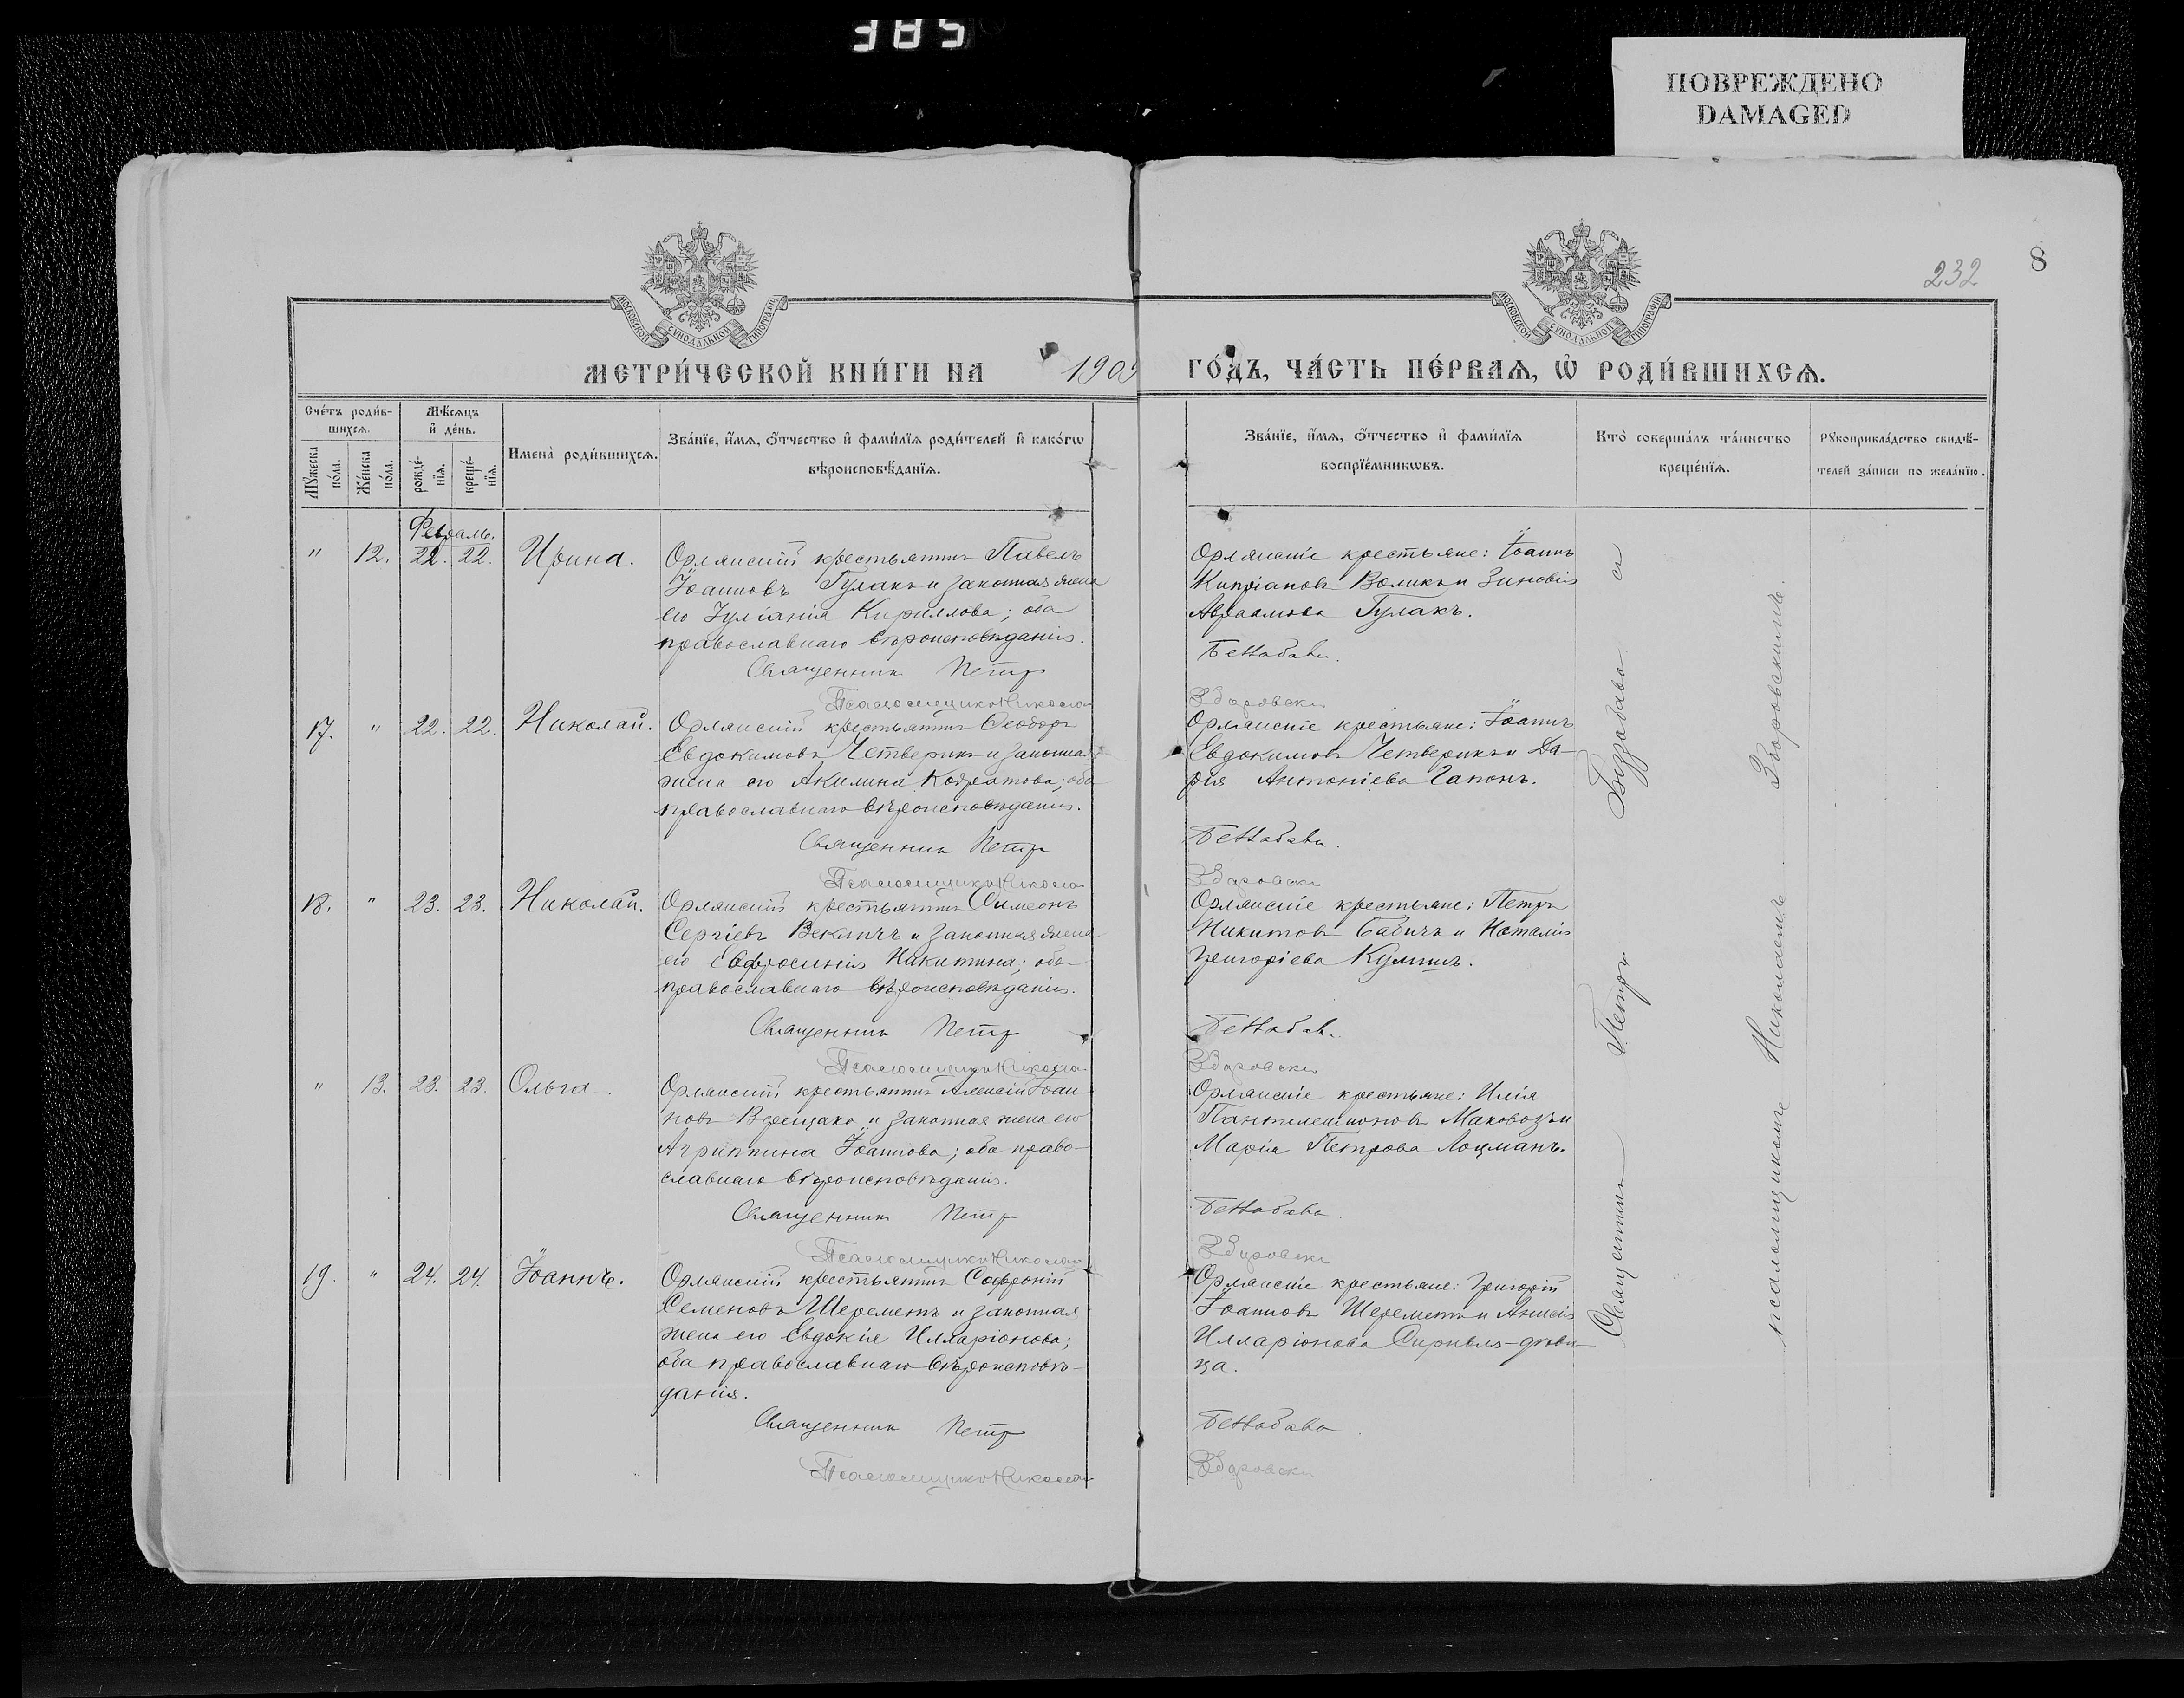 385
ПОВРЕЖДЕНО
DAMAGED
232
8
МОСКОВСКОЙ СУНОДАЛЬНОЙ ТИПОГРАФІИ
МОСКОВСКОЙ СУНОДАЛЬНОЙ ТИПОГРАФІИ
МЕТРИ́ЧЕСКОЙ КНИ́ГИ НА 1909 ГО́ДЪ, ЧА́СТЬ ПЕ́РВАѦ, Ѡ РОДИ́ВШИХСѦ.
Сче́тъ роди́в-
шихсѧ.
Мꙋ́жеска по́ла.
Же́нска по́ла.
Мѣ́сѧцъ
и҆ де́нь.
рожде́-
нїѧ.
креще́-
нїѧ.
Имена̀ роди́вшихсѧ.
Зва́нїе, и҆́мѧ, ѻ҆́тчество и҆ фами́лїѧ роди́телей и҆ како́гѡ
вѣроисповѣ́данїѧ.
Зва́нїе, и҆́мѧ, ѻ҆́тчество и҆ фами́лїѧ
воспрїе́мникѡвъ.
Кто̀ соверша́лъ та́инство
креще́нїѧ.
Рꙋкоприкла́дство свидѣ́-
телей за́писи по жела́нїю.
Февраль.
" 12. 22. 22. Ирина.
Орлянскій крестьянинъ Павелъ
Іоанновъ Гулакъ и законная жена
его Іуліанія Кириллова; оба
православнаго вѣроисповѣданія.
Священникъ Петръ
Псаломщикъ Николай
Орлянскіе крестьяне: Іоаннъ
Кипріановъ Воликъ и Зиновія
Авраамова Гулакъ.
Беззабава.
Зборовскій
17. " 22. 22. Николай.
Орлянскій крестьянинъ Ѳеодоръ
Евдокимовъ Четверикъ и законная
жена его Акилина Кодратова; оба
православнаго вѣроисповѣданія.
Священникъ Петръ
Псаломщикъ Николай
Орлянскіе крестьяне: Іоаннъ
Евдокимовъ Четверикъ и Да-
рія Антоніева Гапонъ.
Беззабава.
Зборовскій
18. " 23. 23. Николай.
Орлянскій крестьянинъ Симеонъ
Сергіевъ Векличъ и законная жена
его Евфросинія Никитина; оба
православнаго вѣроисповѣданія.
Священникъ Петръ
Псаломщикъ Николай
Орлянскіе крестьяне: Петръ
Никитовъ Бабичъ и Наталія
Григоріева Кулишъ.
Беззабава.
Зборовскій
" 13. 23. 23. Ольга.
Орлянскій крестьянинъ Алексій Іоан-
новъ Верещака и законная жена его
Агриппина Іоаннова; оба право-
славнаго вѣроисповѣданія.
Священникъ Петръ
Псаломщикъ Николай
Орлянскіе крестьяне: Илія
Пантелеимоновъ Маковозъ и
Марія Петрова Лоцманъ.
Беззабава.
Зборовскій
19. " 24. 24. Іоаннъ.
Орлянскій крестьянинъ Софроній
Семеновъ Шереметъ и законная
жена его Евдокія Илларіонова;
оба православнаго вѣроисповѣ-
данія.
Священникъ Петръ
Псаломщикъ Николай
Орлянскіе крестьяне: Григорій
Іоанновъ Шереметъ и Анисія
Илларіонова -дѣви-
ца.
Беззабава.
Зборовскій
Священникъ Петръ Беззабава съ
псаломщикомъ Николаемъ Зборовскимъ.